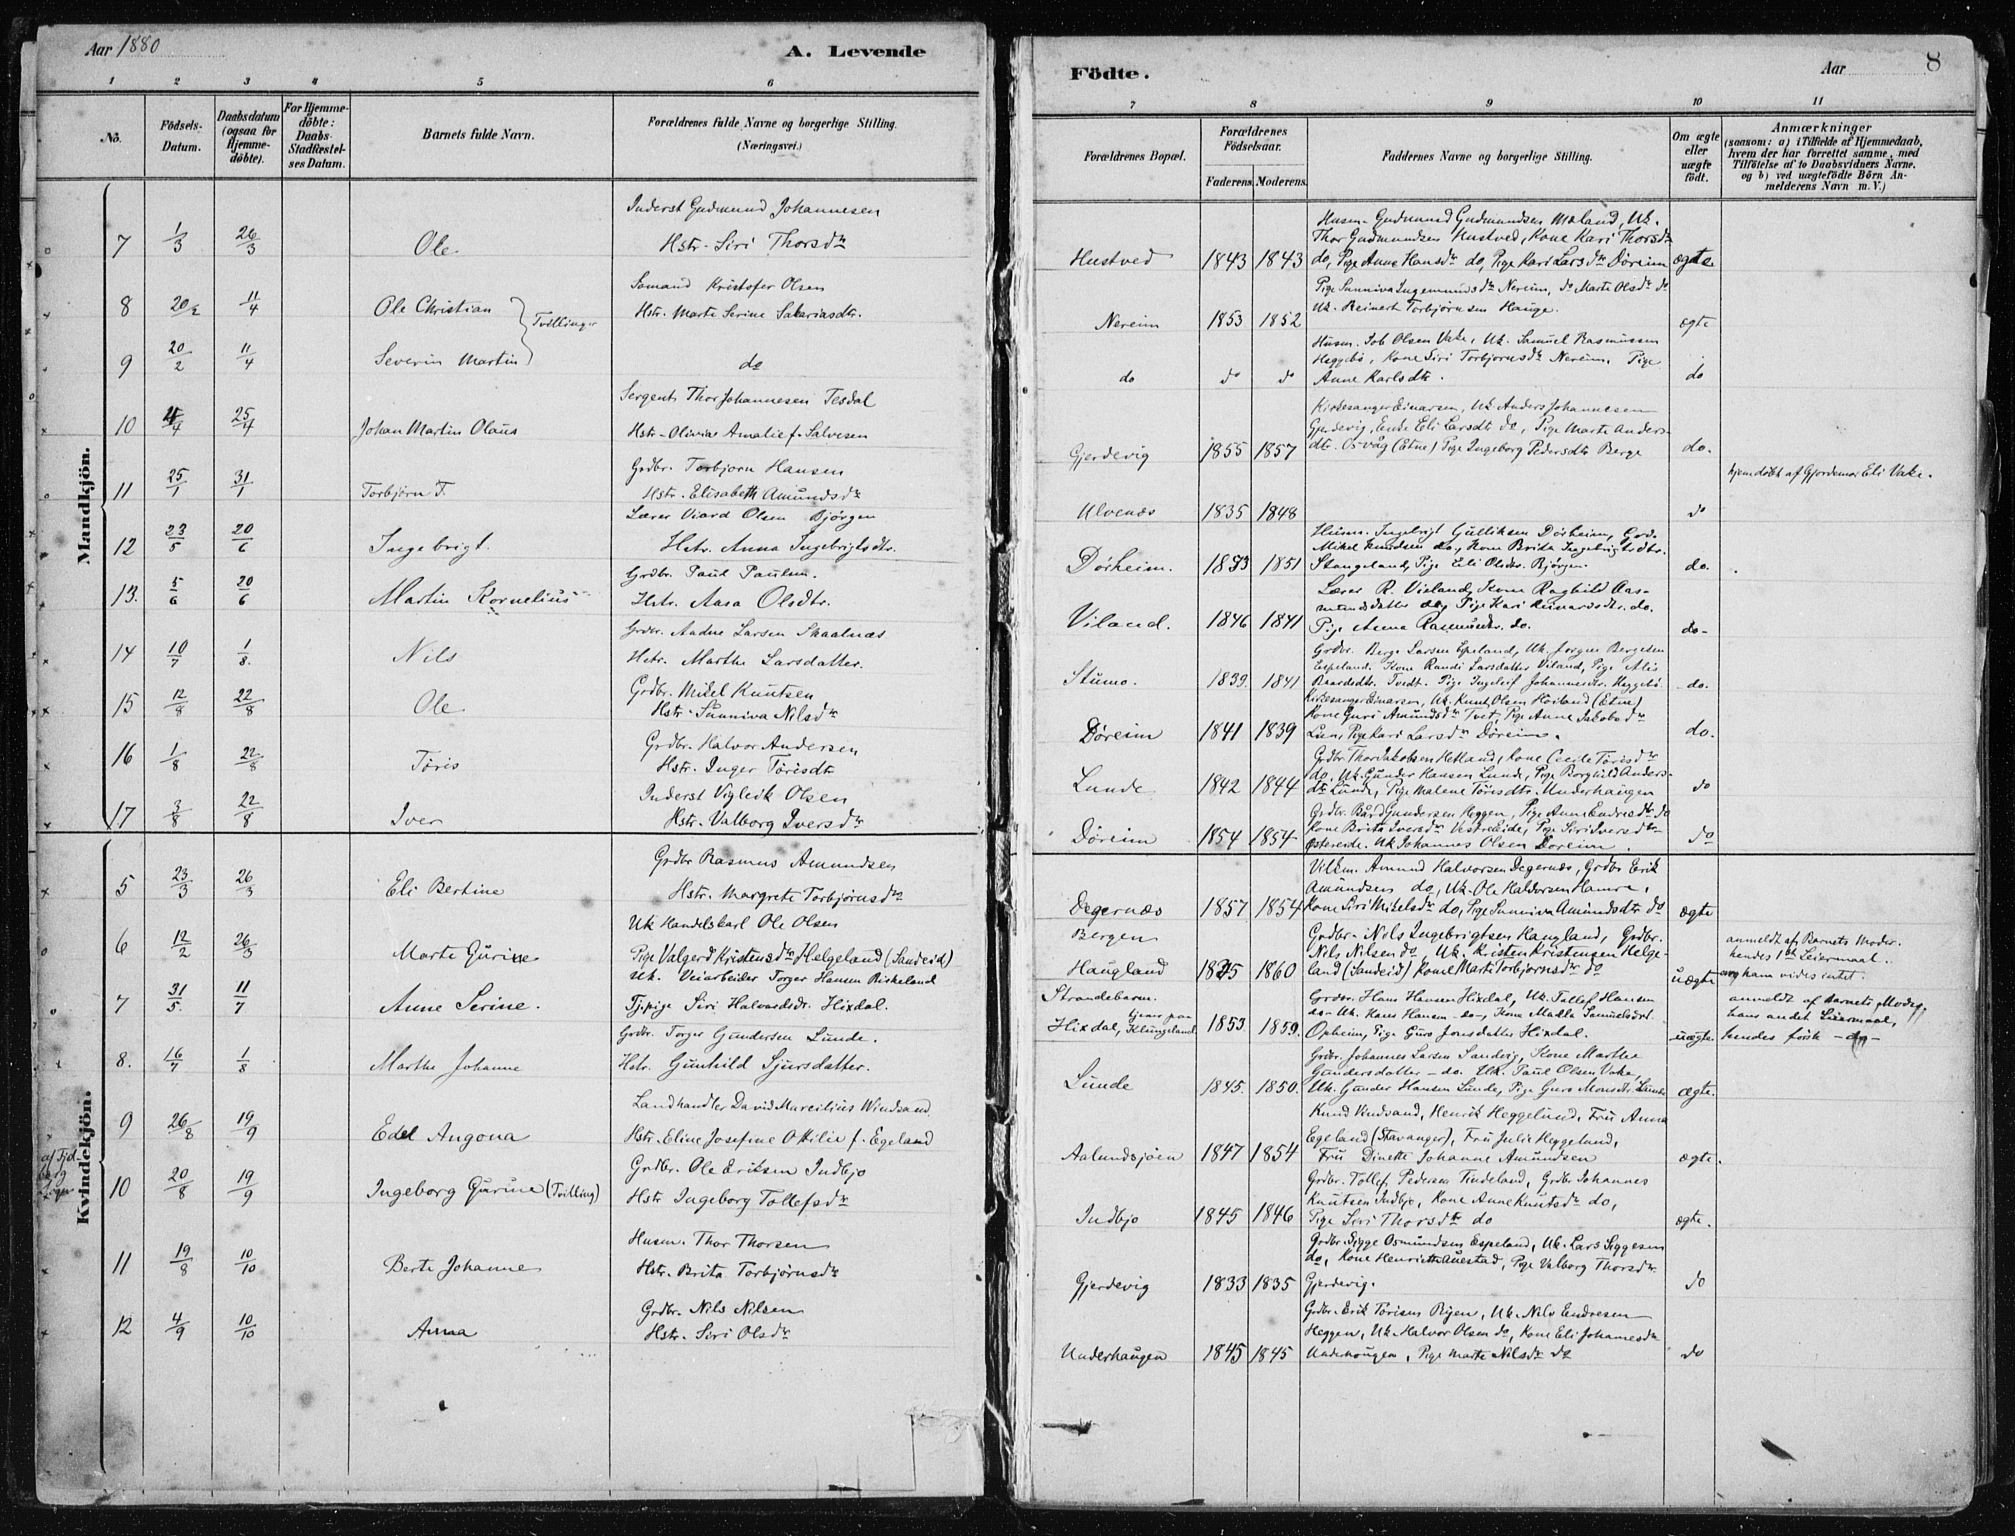 Aar 1880
A. Levende
Födte.
Aar
8
1
2
3
4
5
6
7
8
9
10
11
No.
Födsels-
Datum.
Daabsdatum
(ogsaa for
Hjemme-
döbte).
For Hjemme-
döbte:
Daabs-
Stadfæstel-
ses Datum.
Barnets fulde Navn.
Forældrenes fulde Navne og borgerlige Stilling.
(Næringsvei.)
Forældrenes Bopæl.
Forældrenes
Födselsaar.
Faderens.
Moderens.
Faddernes Navne og borgerlige Stilling.
Om ægte
eller
uægte
födt.
Anmærkninger
(saasom: a) i Tilfælde af Hjemmedaab,
hvem der har forrettet samme, med
Tilföielse af to Daabsvidners Navne,
og b) ved uægtefödte Börn An-
melderens Navn m. V.)
Mandkjön.
7 1/3 26/3 Ole
Inderst Gudmund Johannesen
Hstr. Siri Thorsdtr
Hustved 1843 1843
Husm. Gudmund Gudmundsen Mæland, Uk.
Thor Gudmundsen Hustved, Kone Kari Thorsdtr
do, Pige Anne Hansdtr do, Pige Kari Larsdtr Döreim
ægte
8 20/2 11/4 Ole Christian
Tvillinger
Sömand Kristofer Olsen
Hstr. Marte Serine Sakariasdtr.
Nereim 1853 1852
Pige Sunniva Ingemundsdtr Nereim, do Marte Olsdtr do
Uk. Reinert Torbjørnsen Hauge.
ægte
9 20/2 11/4 Severin Martin
do
do do do
Husm. Job Olsen Vake, Uk. Samuel Rasmussen
Heggebö, Kone Siri Torbjørnsdtr Nereim, Pige
Anne Karlsdtr.
do
10 4/4 25/4 Johan Martin Olaus
Sergent Thor Johannesen Tesdal
Hstr. Olivia Amalie f. Salvesen
Gjerdevig 1855 1857
Kirkesanger Einarsen, Uk. Anders Johannesen
Gjerdevig, Enke Eli Larsdtr do, Pige Marte Anders-
dtr. Osvåg (Etne) Pige Ingeborg Pedersdtr Berge
do.
11 25/1 31/1 Torbjörn T.
Grdbr. Torbjorn Hansen
Hstr. Elisabeth Amundsdtr
Ulvenæs 1835 1848
do
hjemdöbt af Gjordemor Eli Vake.
12 23/5 20/6 Ingebrigt.
Lærer Viard Olsen Bjørgen
Hstr. Anna Ingebrigtsdtr.
Dörheim. 1853 1851
Husm. Ingebrigt Gulliksen Dörheim, Grdb.
Mikel Knudsen do, Kone Brita Ingebrigtsdtr.
Stangeland, Pige Eli Olsdtr. Bjørgen.
do.
13. 5/6 20/6 Martin Kornelius
Grdbr. Paul Paulsen.
Hstr. Aasa Olsdtr.
Viland. 1846 1841
Lærer R. Vieland, Kone Ragnhild Aas-
mundsdatter og Pige Kari Reinardsdtr. do.
Pige Anna Rasmusdtr. do.
do-
14 10/7 1/8. Nils
Grdbr. Aadne Larsen Skaalnæs
Hstr. Marthe Larsdatter.
Stumo. 1839. 1841
Grdbr. Berge Larsen Espeland, Uk. Jørgen Bergesen
Espeland. Kone Randi Larsdatter Viland, Pige Alis
Baardsdtr. Tvedt. Pige Ingeleif Johannesdtr. Heggebö.
do.
15 12/8 22/8 Ole
Grdbr. Mikel Knutsen
Hstr. Sunniva Nilsdtr
Döreim 1841 1839
Kirkesanger Einarsen, Uk. Knut Olsen Höiland (Etne)
Kone Guri Amundsdtr Tvet, Pige Anne Jakobsdtr
Lien, Pige Kari Larsdtr Döreim.
do.
16 1/8 22/8 Töris
Grdbr. Halvor Andersen
Hstr. Inger Törisdtr
Lunde 1842 1844
Grdbr Thor Jakobsen Hetland, Kone Cecile Törisdtr
do, Uk. Gunder Hansen Lunde, Pige Borghild Anders-
dtr Lunde, Pige Malene Törisdtr. Underhaugen
do
17 3/8 22/8 Iver
Inderst Vigleik Olsen
Hstr. Valborg Iversdtr
Döreim 1854 1854
Grdbr. Bård Gundersen Heggen, Pige Anne Endresdtr do
Kone Brita Iversdtr Vestreeide, Pige Siri Iversdtr
Østereide. Uk Johannes Olsen Döreim.
do
Kvindekjön.
5 23/3 26/3 Eli Bertine
Grdbr Rasmus Amundsen
Hstr. Margrete Torbjørnsdtr
Degernæs 1857 1854
Vilkm. Amund Halvorsen Degernæs, Grdbr Erik
Amundsen do, Uk. Ole Haldorsen Hamre,
Kone Siri Mikelsdtr do, Pige Sunniva Amundsdtr do
ægte
6 12/2 26/3 Marte Gurine
Uk Handelskarl Ole Olsen
Pige Valgerd Kristensdtr Helgeland (Sandeid)
Bergen
Haugland 1845 1860
Grdbr. Nils Ingebrigtsen Haugland, Grdbr.
Nils Nilsen do, Uk. Kristen Kristensen Helge-
land (Sandeid) Kone Marte Torbjørnsdtr do
uægte
anmeldt af Barnets Moder
hendes 1ste Leiermaal.
om ham vides intet.
7 31/5. 11/7 Anne Serine.
sek. Veiarbeider Torger Hansen Birkeland
Tjpige Siri Halvardsdtr. Hixdal.
Strandebarm.
Hixdal, tjener paa
Klungeland. 1853 1859.
Grdbr. Hans Hansen Hixdal, Uk. Tollef Hansen
do- Uk. Hans Hansen do, Kone Madla Samuelsdtr
Opheim, Pige Guro Jonsdatter Hixdal.
uægte.
anmeldt af Barnets Moder,
hans andet Leiermaal,
hendes förste - do-
8. 16/7 1/8 Marthe Johanne
Grdbr. Torger Gundersen Lunde.
Hstr. Gunhild Sjursdatter.
Lunde 1845. 1850.
Grdbr. Johannes Larsen Sandvig, Kone Marthe
Gundersdatter - do. Uk. Paul Olsen Vake,
Uk. Gunder Hansen Lunde, Pige Guro Monsdtr. Lunde
ægte.
9 26/8 19/9 Edel Angona
Landhandler David Marcilius Windsand
Hstr. Eline Josefine Ottilie f. Egeland
Aalundsjöen 1847 1854
Knud Vindsand, Henrik Heggelund, Fru Anna
Egeland (Stavanger), Fru Julie Heggelund,
Fru Dinette Johanne Amundsen
ægte.
af Fjel-
berg
Sogn
10 20/8 19/9 Ingeborg Gurine (Tvilling)
Grdbr. Ole Eriksen Indbjo
Hstr Ingeborg Tollefsdtr
Indbjo 1845 1846
Grdbr. Tollef Pedersen Tindeland, Grdbr Johannes
Knutsen Indbjo, Kone Anne Knutsdtr do,
Pige Siri Thorsdtr do
ægte.
11 19/8 10/10 Berte Johanne
Husm. Thor Thorsen
Hstr. Brita Torbjørnsdtr
Gjerdevig 1833 1835
Grdbr. Sigge Osmundsen Espeland, Uk. Lars Siggesen
do, Kone Henriette Auestad, Pige Valborg Thorsdtr
Gjerdevig.
do
12 4/9 10/10 Anna
Grdbr. Nils Nilsen
Hstr. Siri Olsdtr
Underhaugen 1845 1845
Grdbr. Erik Torisen Byen, Uk. Nils Endresen
Heggen, Uk. Halvor Olsen do, Kone Eli Johannesdtr
Underhougen, Pige Marte Nilsdtr do
do